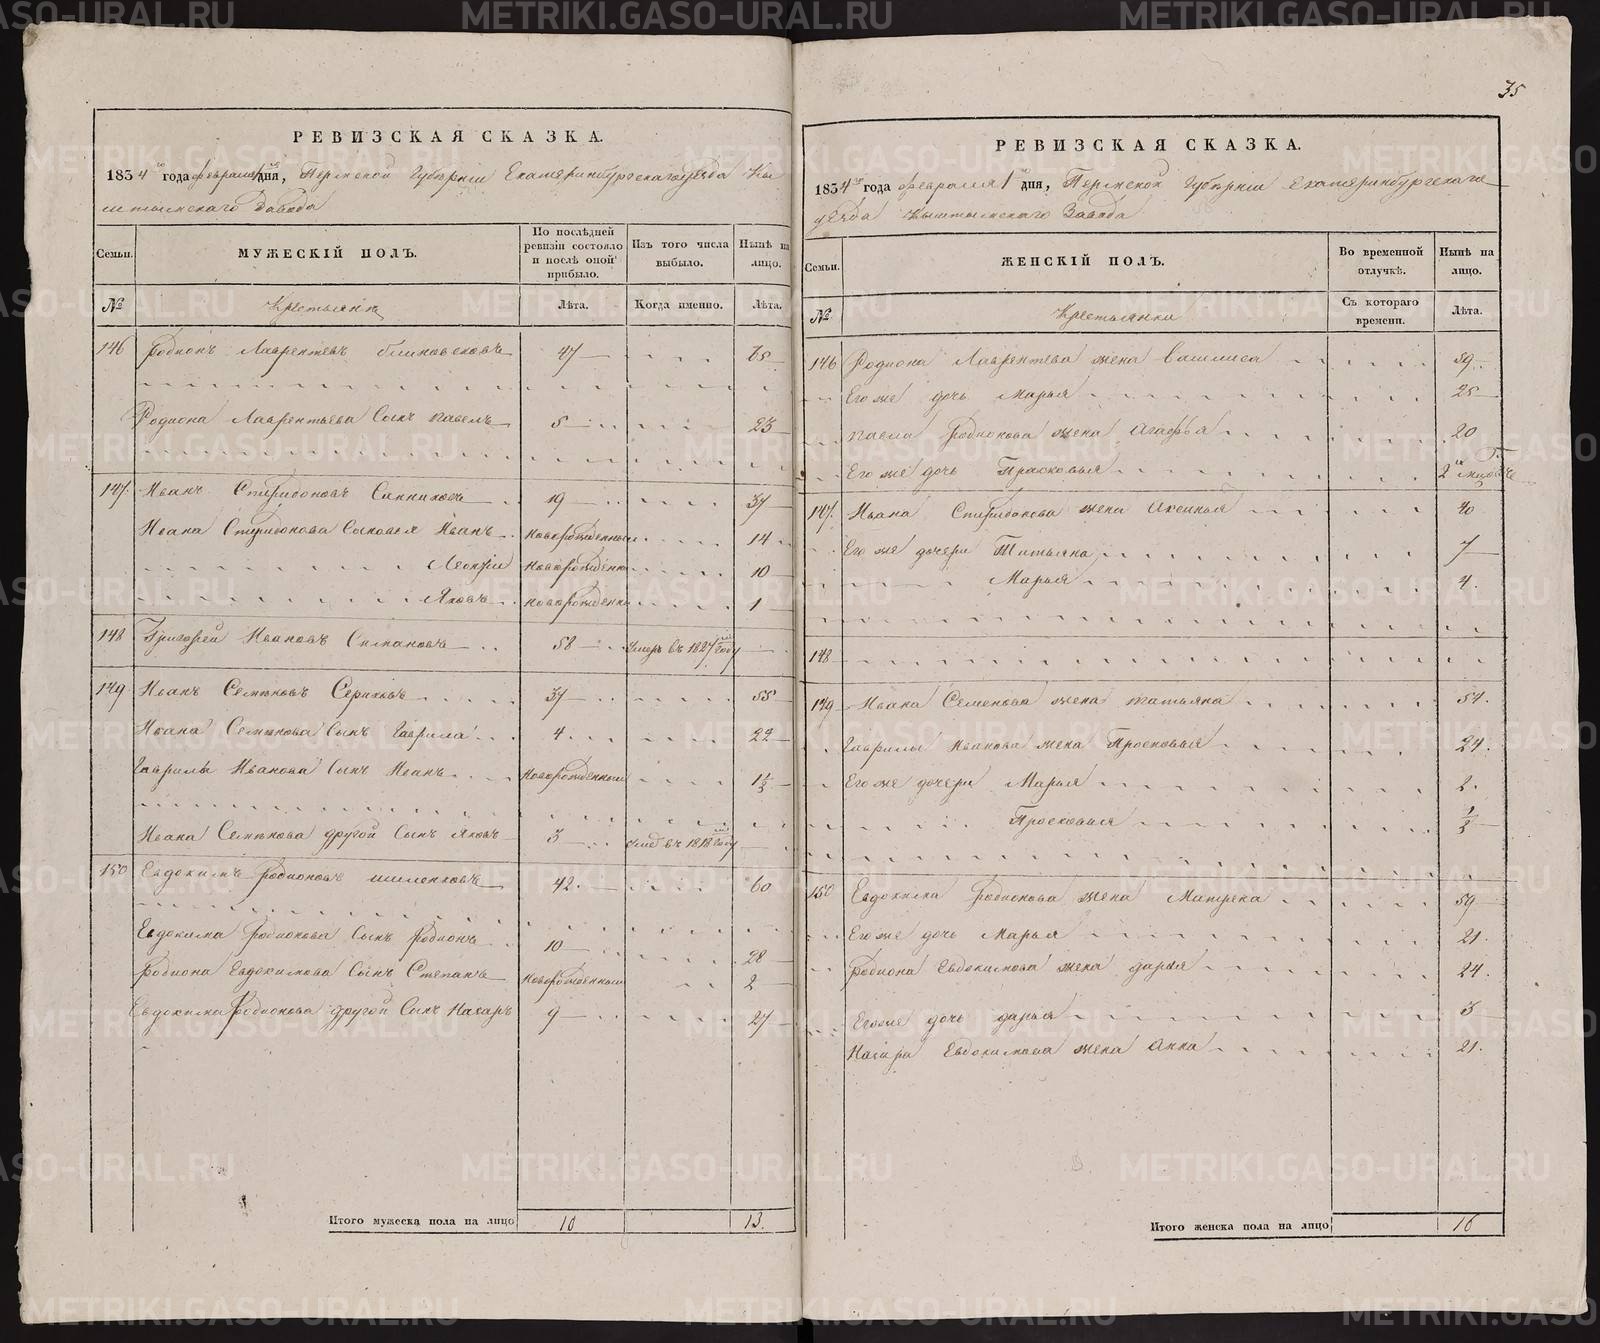 35
РЕВИЗСКАЯ СКАЗКА.
1834 го года февраля 1 дня, Пермской Губерніи Екатеринбургскаго уезда Кы
штымскаго Завода
Семьи.
МУЖЕСКІЙ ПОЛЪ.
По послѣдней ревизіи состояло и послѣ оной прибыло.
Изъ того числа выбыло.
Нынѣ на лицо.
№
Крестьяне
Лѣта.
Когда именно.
Лѣта.
146 Родионъ Лаврентьевъ 47 65
Родиона Лаврентьева Сынъ Павелъ 5 23
147. Иванъ Спиридоновъ Санниковъ 19 37
Ивана Спиридонова Сыновья Иванъ Новорожденный 14
Леонтiй Новорожденн 10
Яковъ Новорожденн 1
148 Григорей Ивановъ 58 умеръ въ 1827 году
149 Иванъ Семеновъ Сериковъ 37 55
Ивана Семенова Сынъ Гаврила 4 22
Гаврилы Иванова Сынъ Иванъ Новорожденный 1½
Ивана Семенова другой Сынъ Яковъ 3 умеръ въ 1818 году
150 Евдокимъ Родионовъ 42 60
Евдокима Родионова Сынъ Родионъ 10 28
Родиона Евдокимова Сынъ Степанъ Новорожденный 2
Евдокима Родионова другой Сынъ Назаръ 9 27
Итого мужеска пола на лицо 10 13.
РЕВИЗСКАЯ СКАЗКА.
1834 го года февраля 1 дня, Пермской Губерніи Екатеринбургскаго
уезда Кыштымскаго Завода
Семьи.
ЖЕНСКІЙ ПОЛЪ.
Во временной отлучкѣ.
Нынѣ на лицо.
№
Крестьянки
Съ котораго времени.
Лѣта.
146 Родиона Лаврентьева жена Василиса 59
Его же дочь Марья 25
Павла Родионова жена Агафья 20
Его же дочь Прасковья 2
147. Ивана Спиридонова жена Аксинья 40
Его же дочери Татьяна 7
Марья 4.
148
149 Ивана Семенова жена Татьяна 54.
Гаврилы Иванова жена Просковья 24.
Его же дочери Марья 2.
Просковья ½
150 Евдокима Родионова жена Матрена 59
Его же дочь Марья 21.
Родиона Евдокимова жена Дарья 24.
Его же дочь Дарья 3
Назара Евдокимова жена Анна 21.
Итого женска пола на лицо 16
METRIKI.GASO-URAL.RU